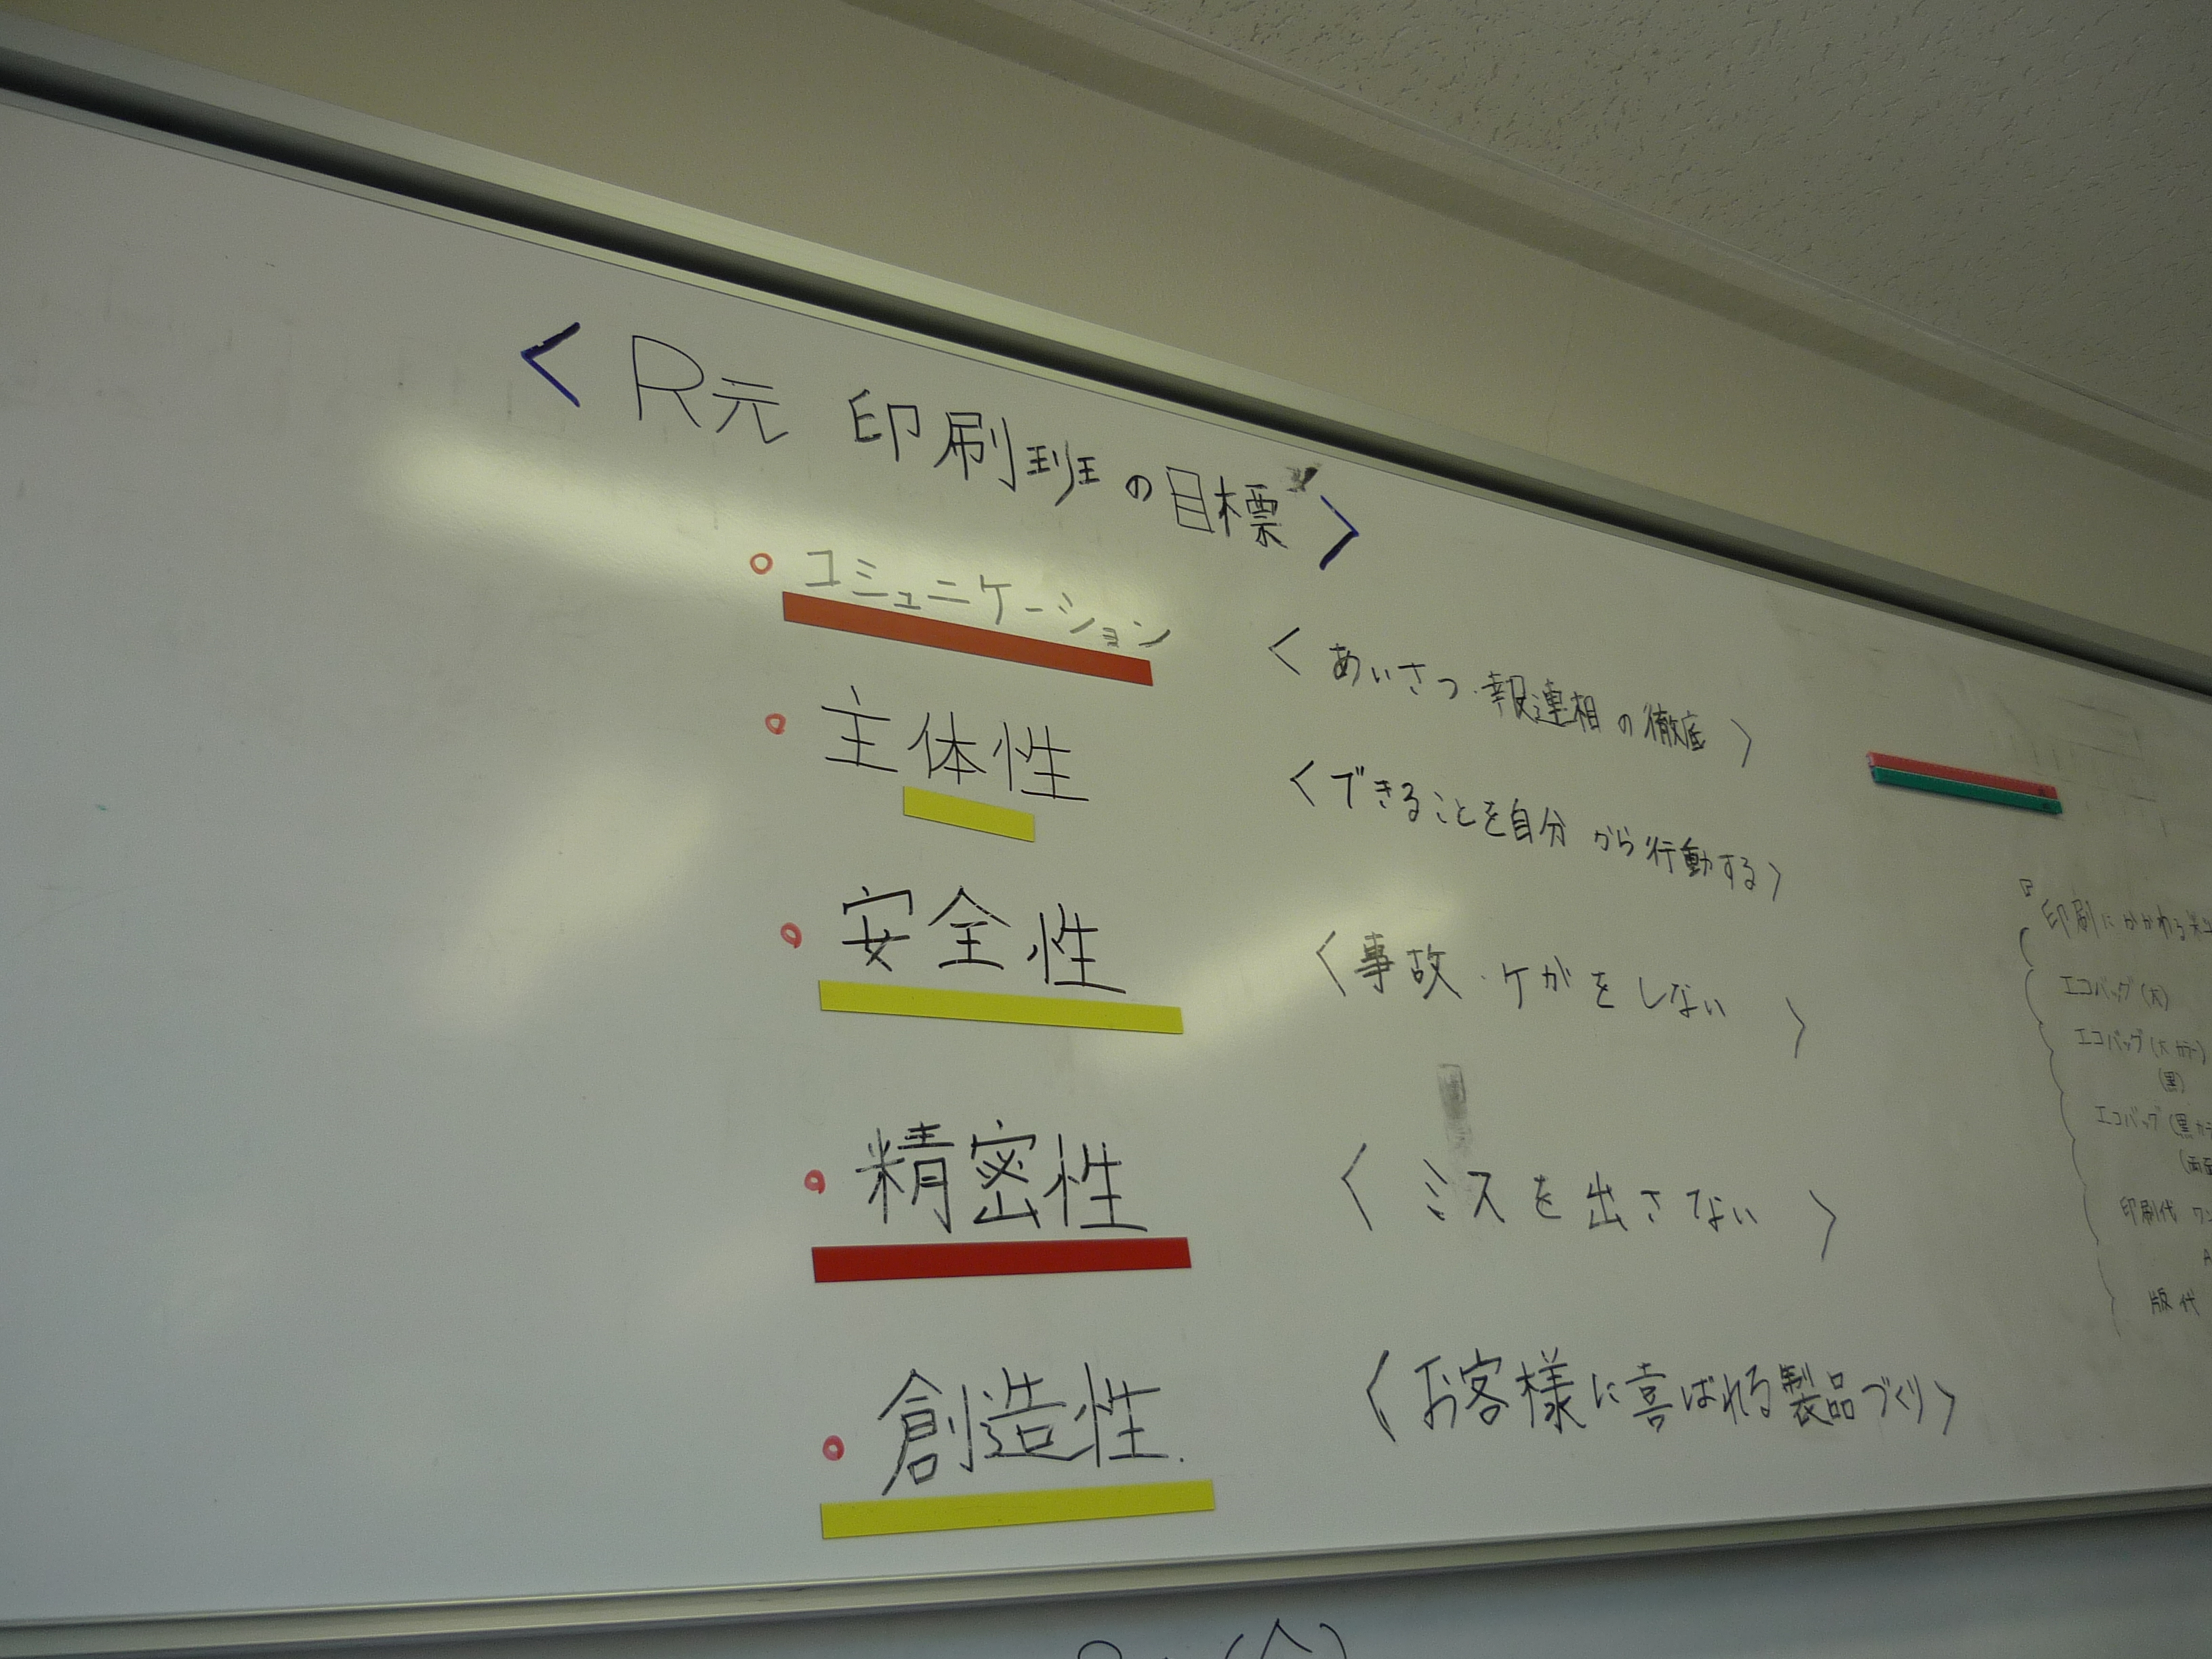 < R元 印刷班の目標 >
○ コミュニケーション
< あいさつ・報連相の徹底 >
○ 主体性
< できることを自分から行動する >
○ 安全性
< 事故・ケガをしない >
○ 精密性
< ミスを出さない >
○ 創造性.
< お客様に喜ばれる製品づくり >
印刷にかかわる
エコバッグ(大)
エコバッグ(大カラー)
(黒)
エコバッグ(黒カラ
(両面
印刷代
A
版代
(金)